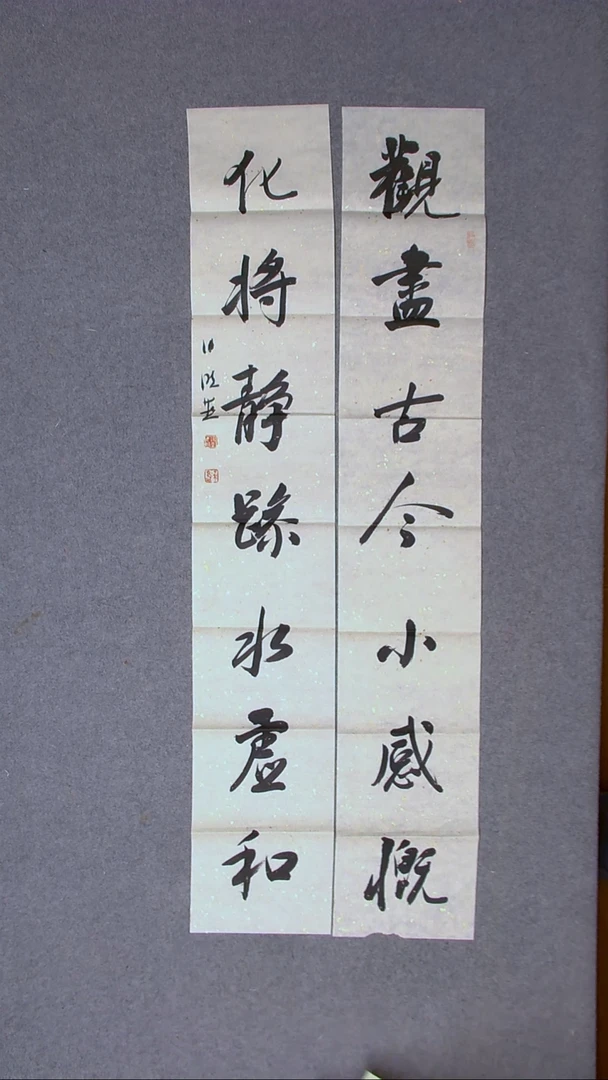 觀盡古今小感慨
化將靜躁水虛和